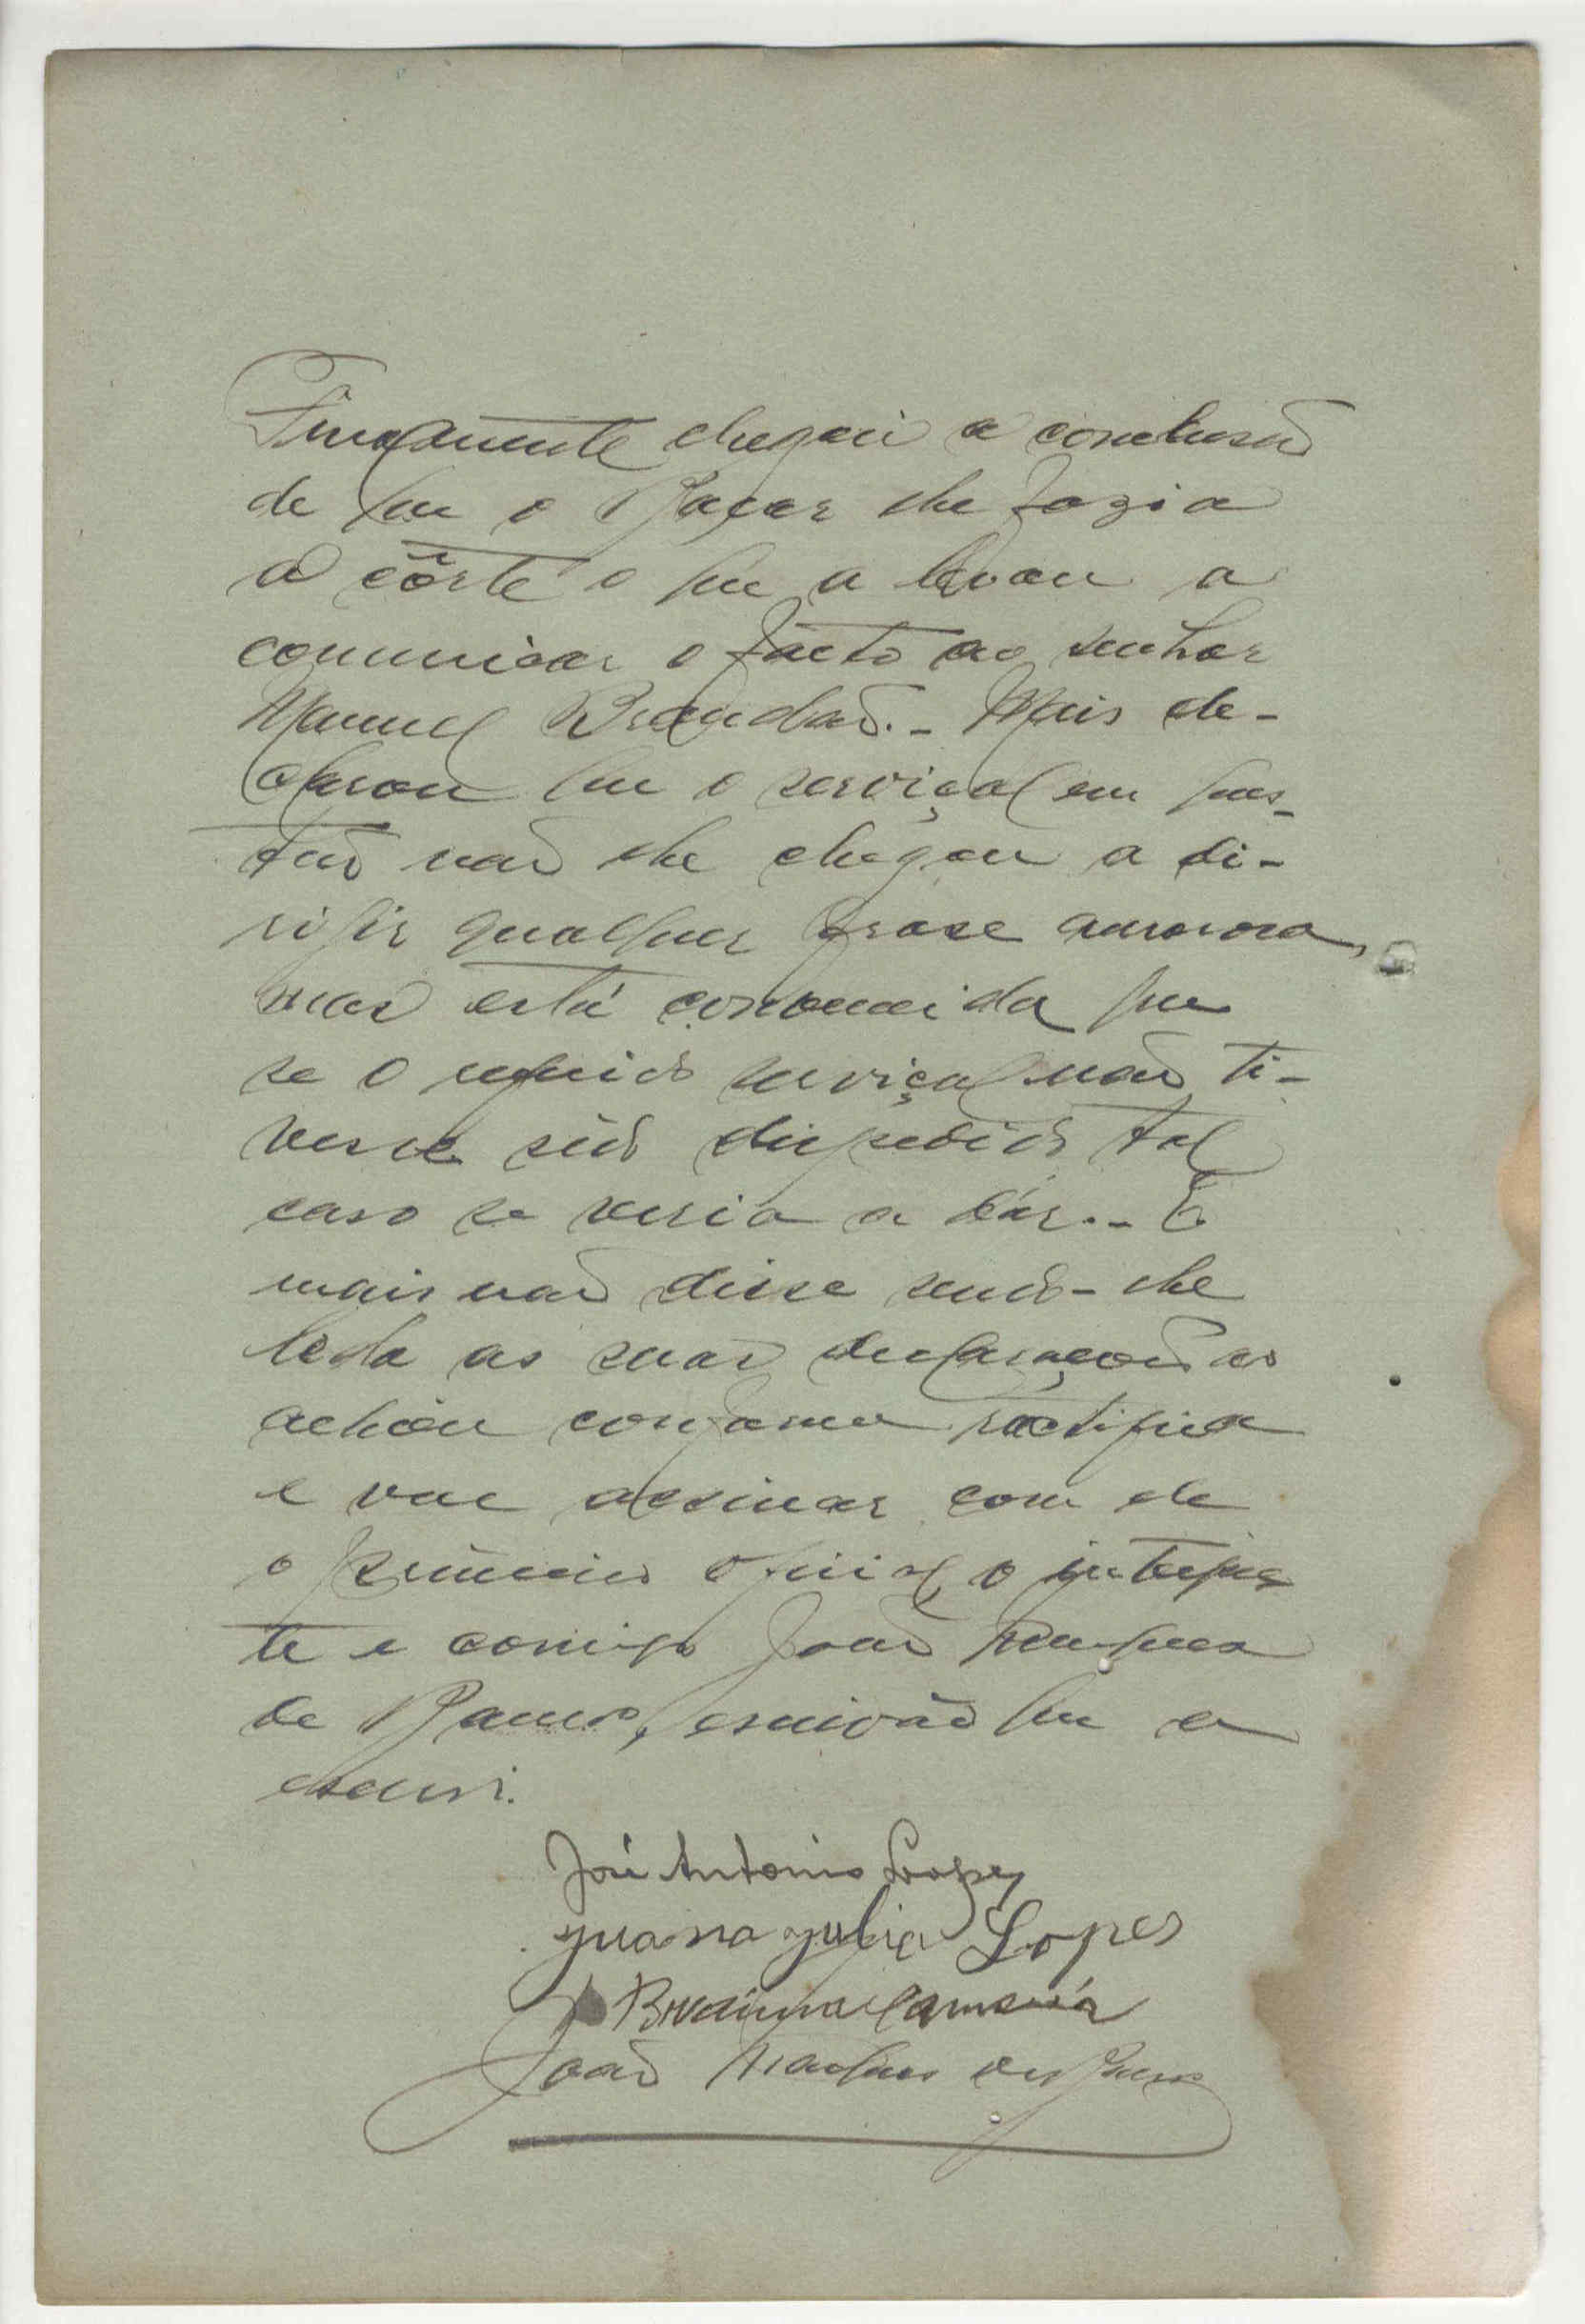 Finalmente chegou a conclusaõ
de que o rapaz lhe fazia
a côrte o que a levou a
comunicar o facto ao senhor
Manuel Brandaõ. - Mais de-
clarou que o serviçal em ques-
taõ naõ lhe chegou a di-
rigir qualquer frase amorosa,
mas está convencida que
se o referido serviçal naõ ti-
vesse sido despedido tal
caso se viria a dár. - E
mais naõ disse sendo-lhe
lida as suas declarações as
achou conforme ractifica
e vae assinar com ele
o primeiro oficial, o interpre
te e comigo Joaõ
de escrivaõ que a
escrevi.
José Antonio Lopes
Juana Julia Lopes
Joaõ